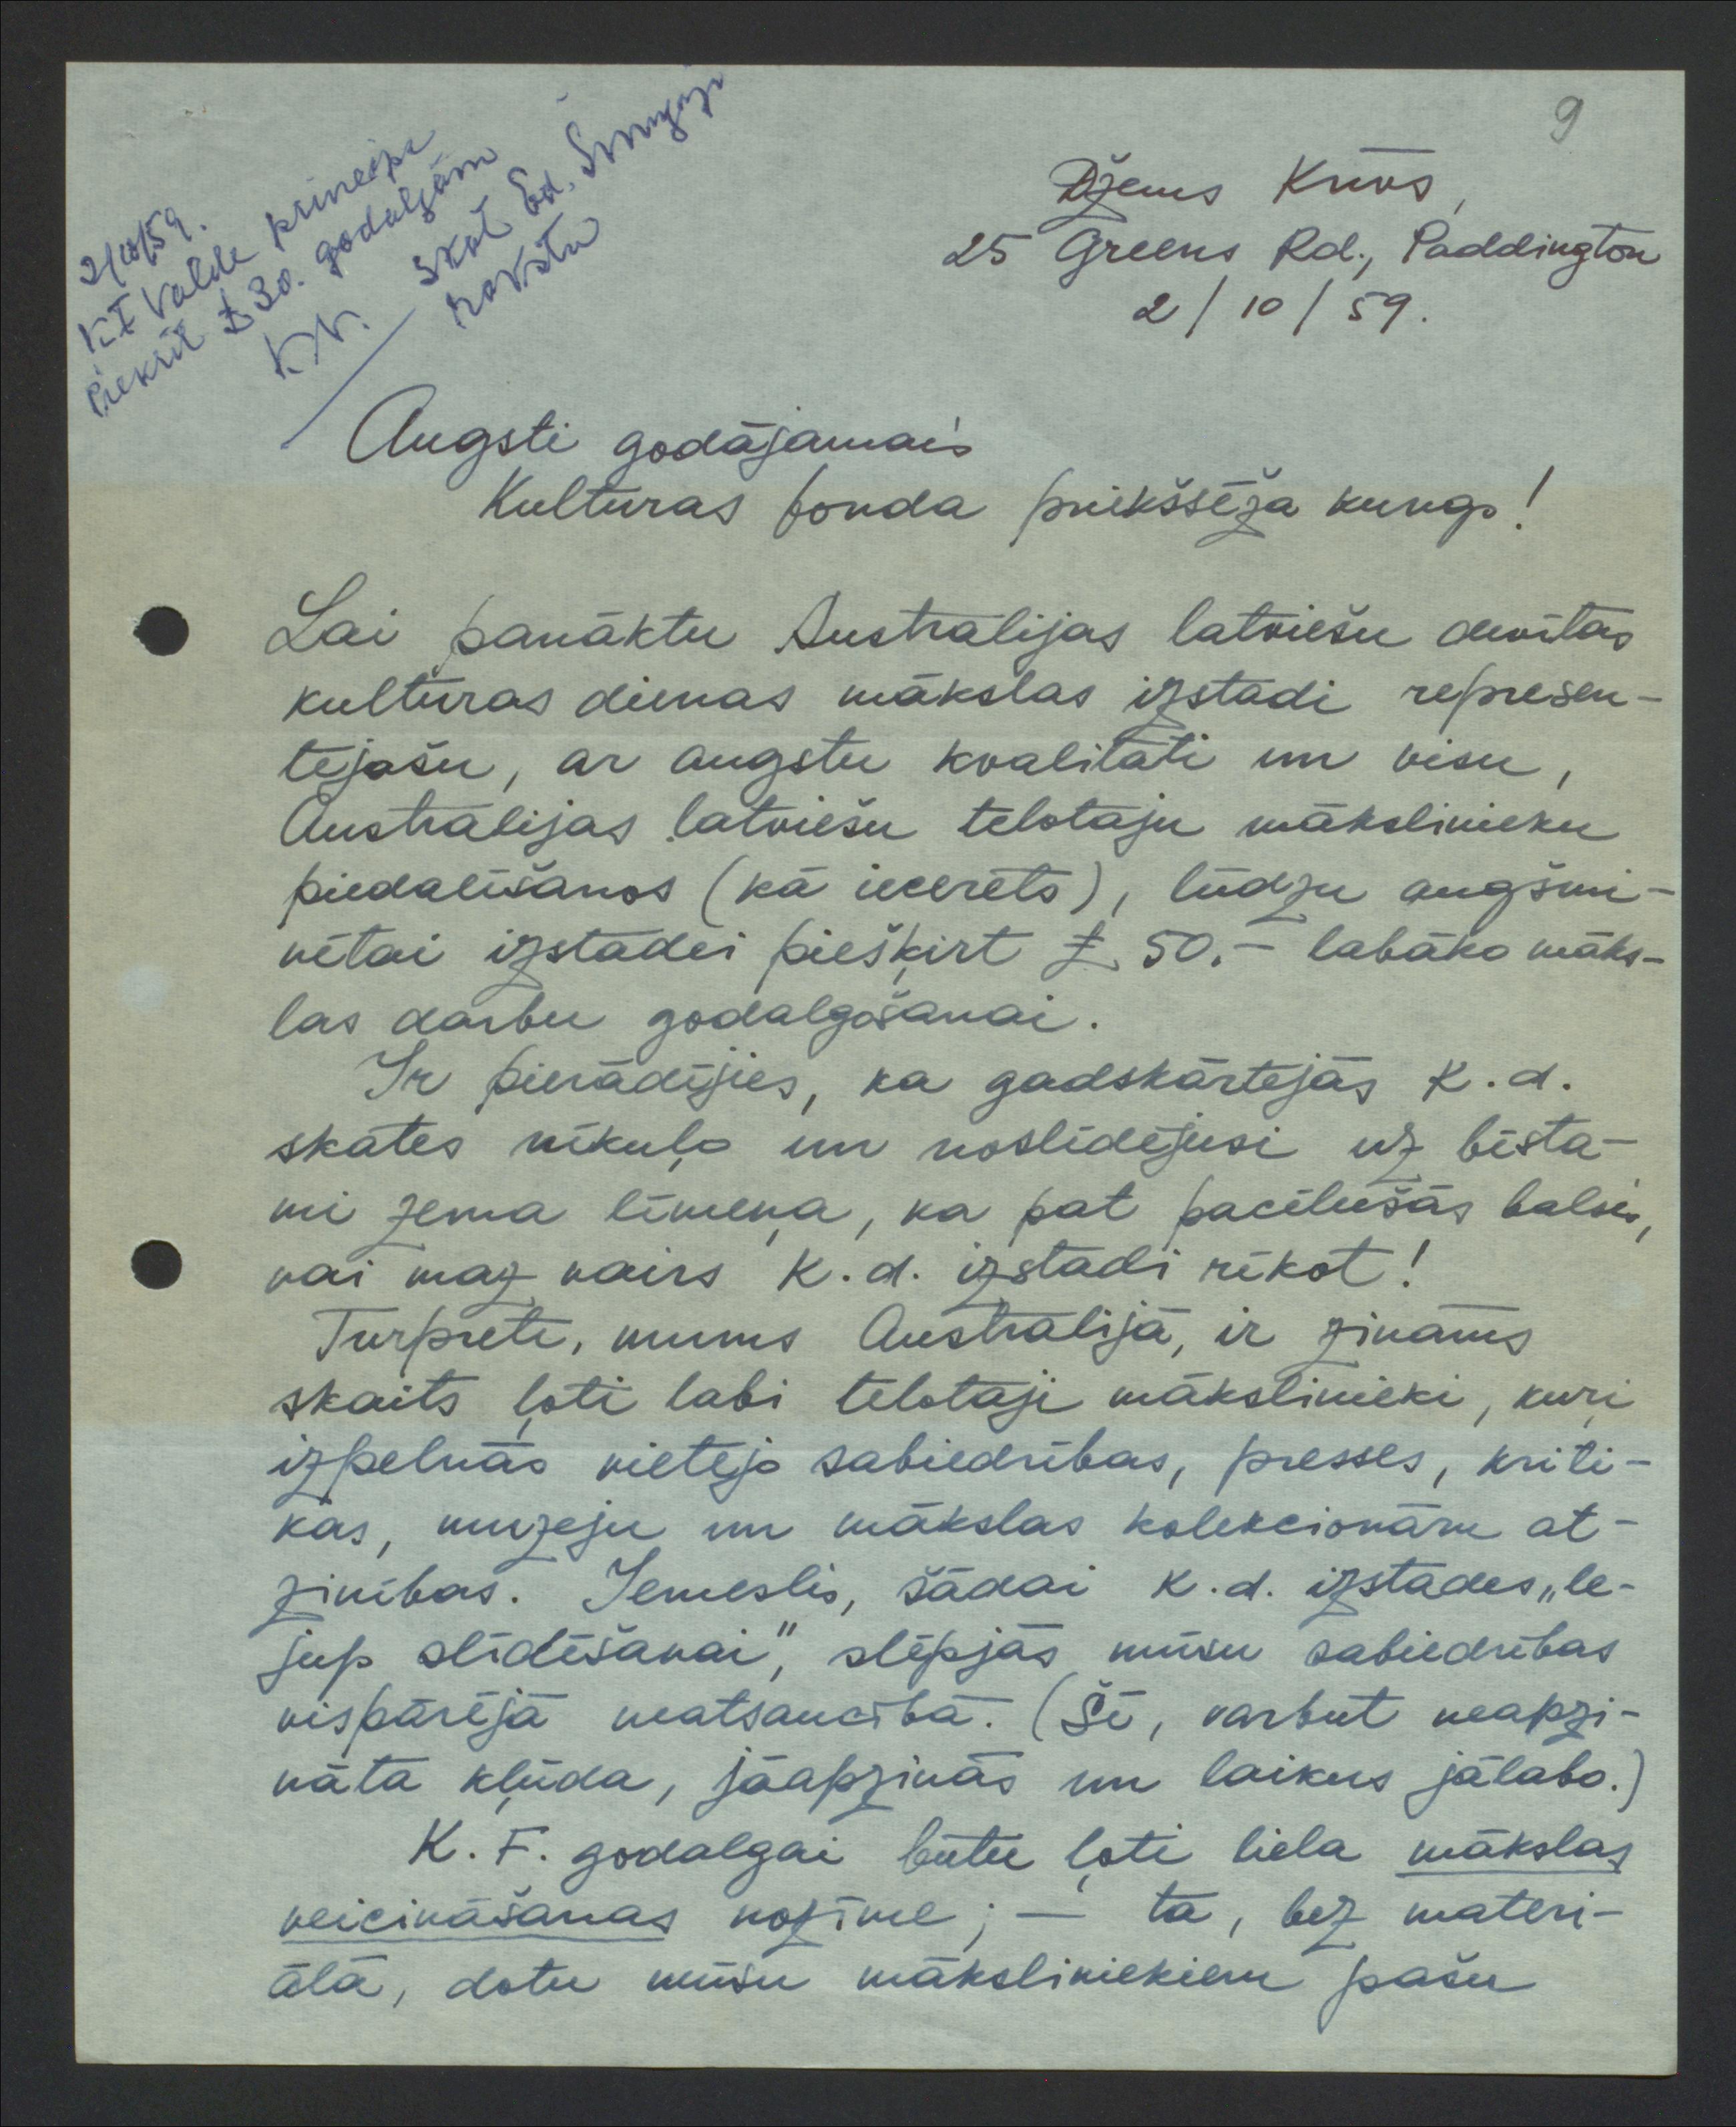 9
Džems Krīvs,
25 Greens Rd., Paddington
2/10/59.
2/10/59.
KF Valde principā
piekrīt £ 30. godalgām
skat Ed.
rakstu
Augsti godājamais
Kulturas fonda priekšsēža kungs!
Lai panāktu Austrālijas latviešu devītās
kultūras dienas mākslas izstādi represen-
tējošu, ar augstu kvalitāti un visu,
Austrālijas latviešu tēlotāju mākslinieku
piedalīšanos (kā iecerēts), lūdzu augšmi-
nētai izstādei piešķirt £ 50.- labāko māks-
las darbu godalgošanai.
Ir pierādījies, ka gadskārtējās K.d.
skates nīkuļo un noslīdējusi uz bīsta-
mi zema līmeņa, ka pat pacēlušās balsis,
vai maz vairs K.d. izstādi rīkot!
Turpreti, mums Austrālijā, ir zināms
skaits ļoti labi tēlotāji mākslinieki, kuŗi
izpelnās vietējo sabiedrības, presses, kriti-
kas, muzeju un mākslas kolekcionāru at-
zinības. Iemeslis, šādai K.d. izstādes „le-
jup slīdēšanai", slēpjās mūsu sabiedrības
vispārējā neatsaucībā. (Šī, varbūt neapzi-
nāta kļūda, jāapzinās un laikus jālabo.)
K.F. godalgai būtu ļoti liela mākslas
veicināšanas nozīme; — tā, bez materi-
ālā, dotu mūsu māksliniekiem pašu